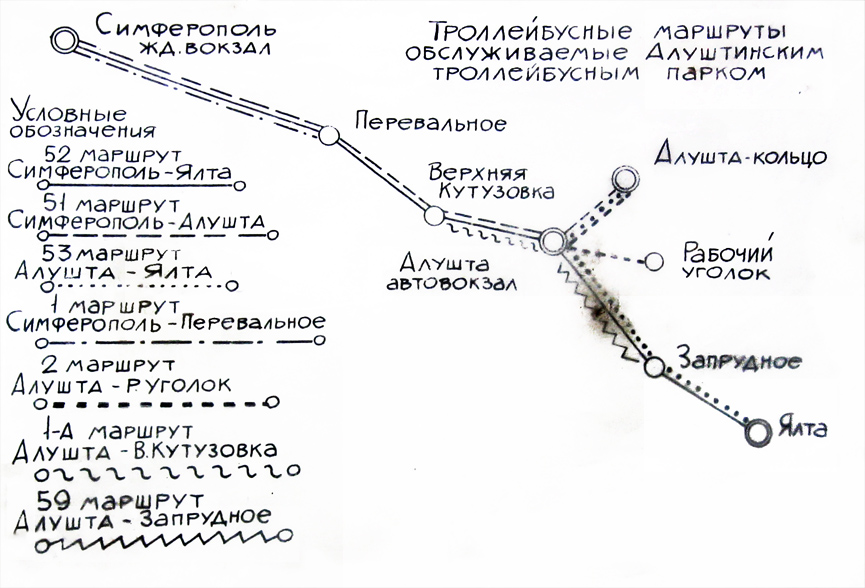 Симферополь
жд.вокзал
Троллейбусные маршруты
обслуживаемые Алуштинским
троллейбусным парком
Перевальное
Алушта-кольцо
Верхняя
Кутузовка
Алушта
автовокзал
Рабочий
уголок
Запрудное
Ялта
Условные
обозначения
52 маршрут
Симферополь-Ялта
51 маршрут
Симферополь-Алушта
53 маршрут
Алушта - Ялта
1 маршрут
Симферополь-Перевальное
2 маршрут
Алушта - Р.уголок
1-А маршрут
Алушта - В.Кутузовка
59 маршрут
Алушта - Запрудное